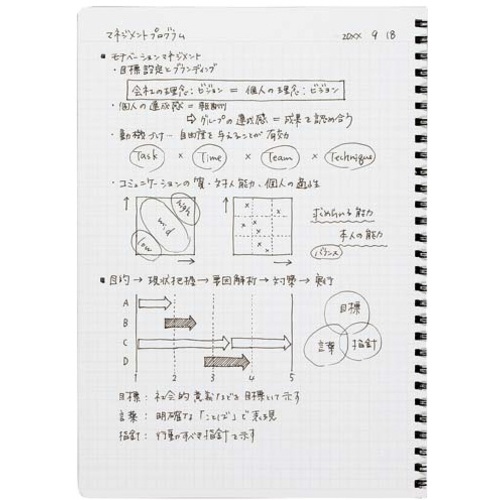 マネジメントプログラム 20XX 9 18
■ モチベーションマネジメント
・目標設定とブランディング
会社の理念:ビジョン = 個人の理念:ビジョン
・個人の達成感 = 報酬
⇨ グループの達成感 = 成果を認め合う
・動機づけ… 自由度を与えることが有効
Task × Time × Team × Technique
・コミュニケーションの質・対人能力、個人の適性
high
mid
low
求められる能力
本人の能力
バランス
■ 目的 → 現状把握 → 要因解析 → 対策 → 実行
A
B
C
D
1 2 3 4 5
目標
言葉 指針
目標: 社会的意義などを目標として示す
言葉: 明確な「ことば」で表現
指針: 行動のすべき指針を示す